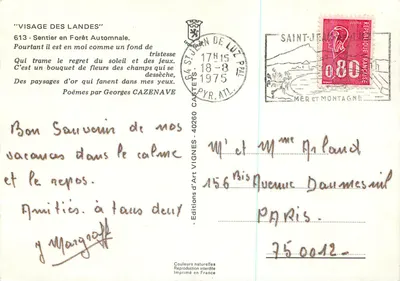 "VISAGE DES LANDES"
613 - Sentier en Forêt Automnale.
Pourtant il est en moi comme un fond de
tristesse
Qui trame le regret du soleil et des jeux.
C'est un bouquet de fleurs des champs qui se
dessèche,
Des paysages d'or qui fanent dans mes yeux.
Poèmes par Georges CAZENAVE
64 ST JEAN DE LUZ Pal
17H15
18-8
1975
PYR. ATL.
SAINT-JEAN
MER et MONTAGNE
0,80
FRANCAISE
- Editions d'Art VIGNES - 40260 CASTETS -
Bon Souvenir de nos
vacances dans le calme
et le repos.
Amitiés. à tous deux
J Margraff
Mr et Mme Arland
156 Bis Avenue Daumesnil
PARIS.
750012-
Couleurs naturelles
Reproduction interdite
Imprimé en France